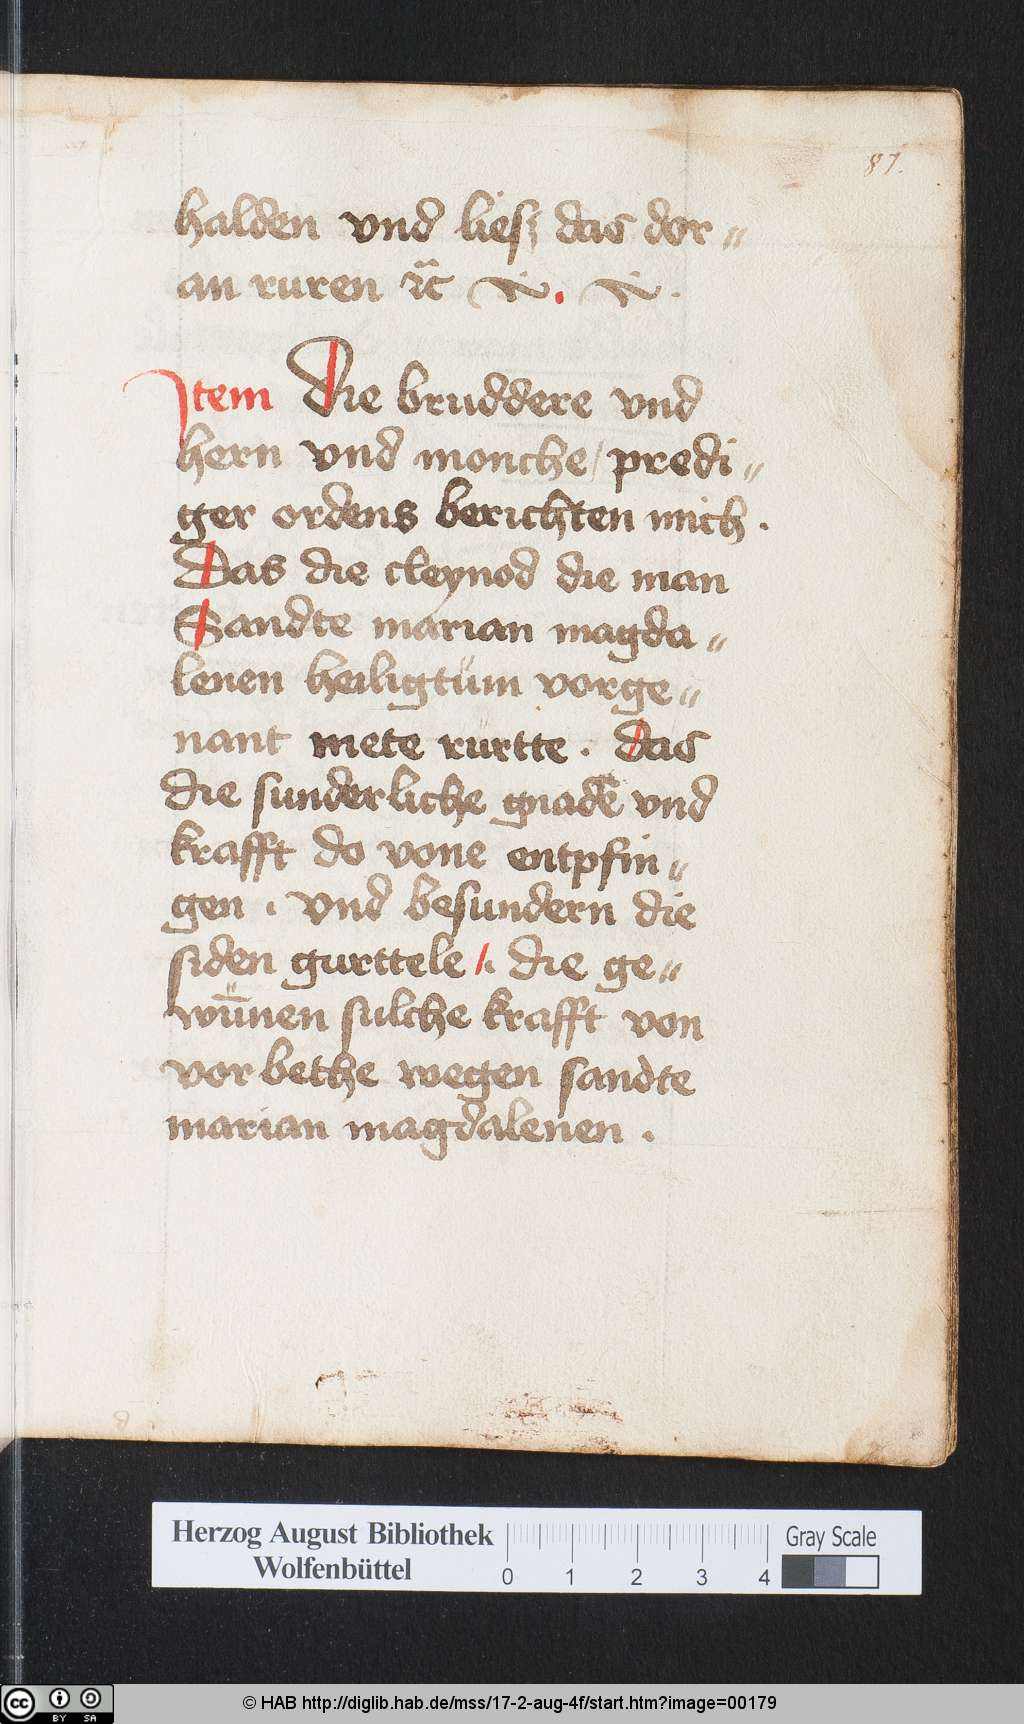 87.
halden vnd liesz das dor〃
an ruren ꝛc̃
Item Die bruddere vnd
hern vnd monche / predi〃
ger ordens berichten mich .
Das die cleynod die man
Sandte marian magda〃
lenen heiligtüm vorge〃
nant mete rurtte . das
die sunderliche gnade vnd
krafft do vone entpfin〃
gen . vnd besundern die
siden gurttele /. die ge〃
wün̄en sulche krafft von
vor bethe wegen sandte
marian magdalenen .
Herzog August Bibliothek
Wolfenbüttel
0 1 2 3 4
Gray Scale
cc BY SA
© HAB http://diglib.hab.de/mss/17-2-aug-4f/start.htm?image=00179